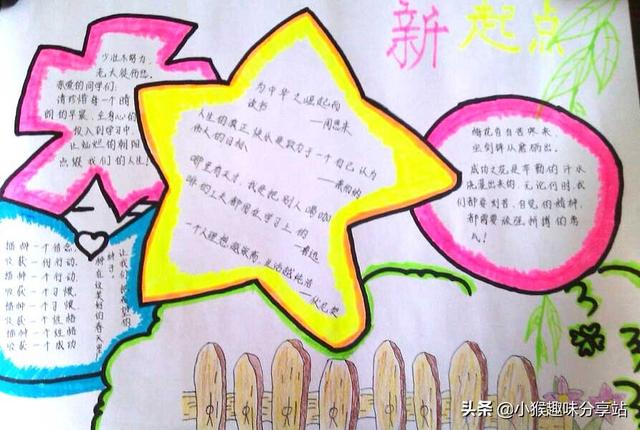 新起点
少壮不努力,
老大徒伤悲。
亲爱的同学们:
请珍惜每一个晴
朗的早晨,全身心的
投入到学习中,
让灿烂的朝阳
点缀我们的人生!
为中华之崛起而
读书
——周恩来
人生的真正快乐是致力于一个自己认为
伟人的目标
哪里有天才,我是把别人喝咖
啡的工夫都用在学习上的
——鲁迅
一个人理想越崇高 生活越纯洁
——伏尼契
梅花香自苦寒来,
宝剑锋从磨砺出。
成功之花是辛勤的汗水
浇灌出来的,无论何时,我
们都要刻苦、自觉的精神,
都需要顽强拼搏的意
气!
播种一个信念,
收获一个行动,
播种一个行动,
收获一个习惯,
播种一个习惯,
收获一个性格
播种一个性格
收获一个成功
头条 @小猴趣味分享站